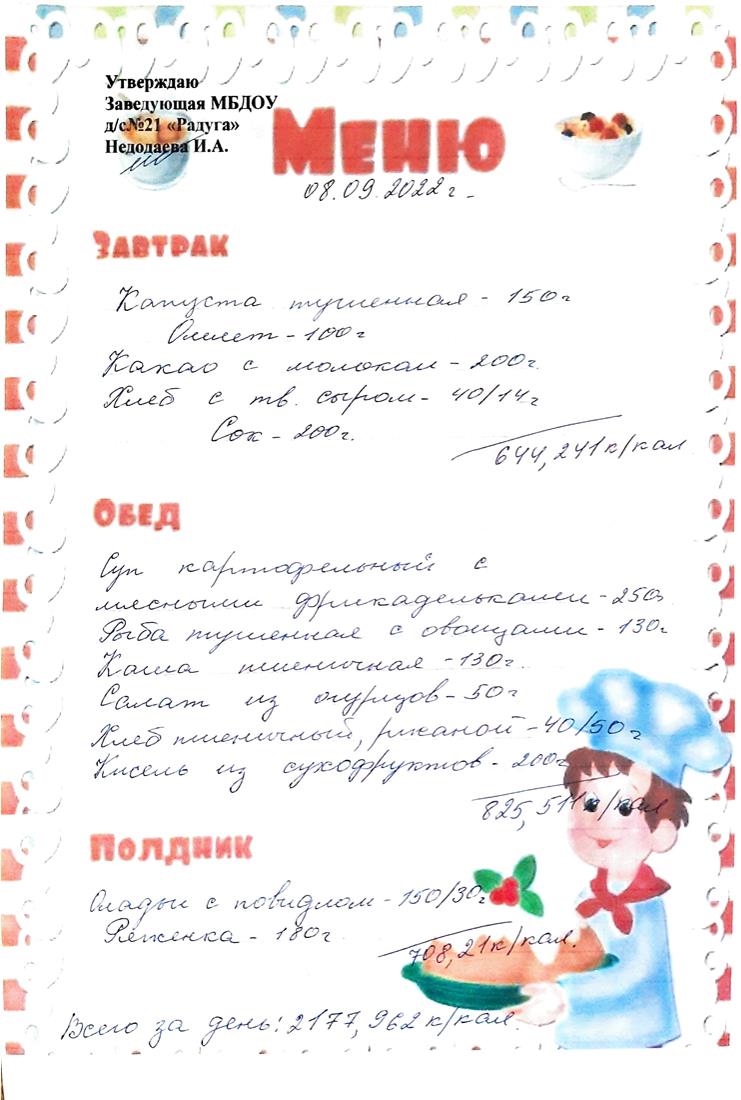 Утверждаю
Заведующая МБДОУ
д/с№21 «Радуга»
Недодаева И.А.
Меню
08.09.2022г.
Завтрак
Капуста тушенная - 150г
Омлет - 100г
Какао с молоком - 200г.
Хлеб с тв. сыром - 40/14г
Сок - 200г.
644,241к/кал
Обед
Суп картофельный с
мясными фрикадельками - 250г
Рыба тушенная с овощами - 130г
Каша пшеничная - 130г.
Салат из огурцов - 50г
Хлеб пшеничный, ржаной - 40/50г
Кисель из сухофруктов - 200г
825,511к/кал
Полдник
Оладьи с повидлом - 150/30г
Ряженка - 180г
708,21к/кал.
Всего за день: 2177,962к/кал